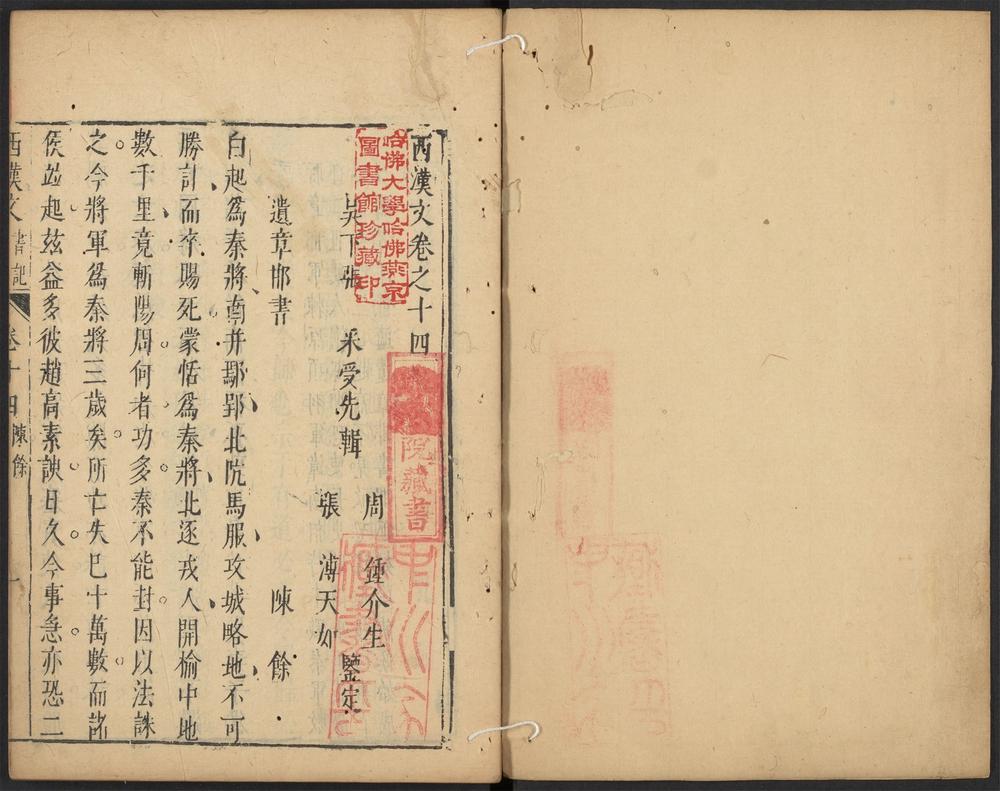 西漢文卷之十四
哈佛大學哈佛燕京
圖書館珍藏印
院藏書
周 鍾介生
吳下張 采受先輯 鑒定
張 溥天如
遺章邯書 陳餘
白起爲秦將南并鄢郢北阬馬服攻城略地不可
勝計而卒賜死蒙恬爲秦將北逐戎人開榆中地
數千里竟斬陽周何者功多秦不能封因以法誅
之今將軍爲秦將三歲矣所亡失已十萬數而諸
侯並起茲益多彼趙高素諛日久今事急亦恐二
西漢文 書記 卷十四 陳餘 一